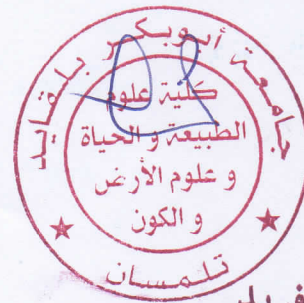 جامعة أبوبكر بلقايد
كلية علوم
الطبيعة و الحياة
و علوم الأرض
و الكون
تلمسان